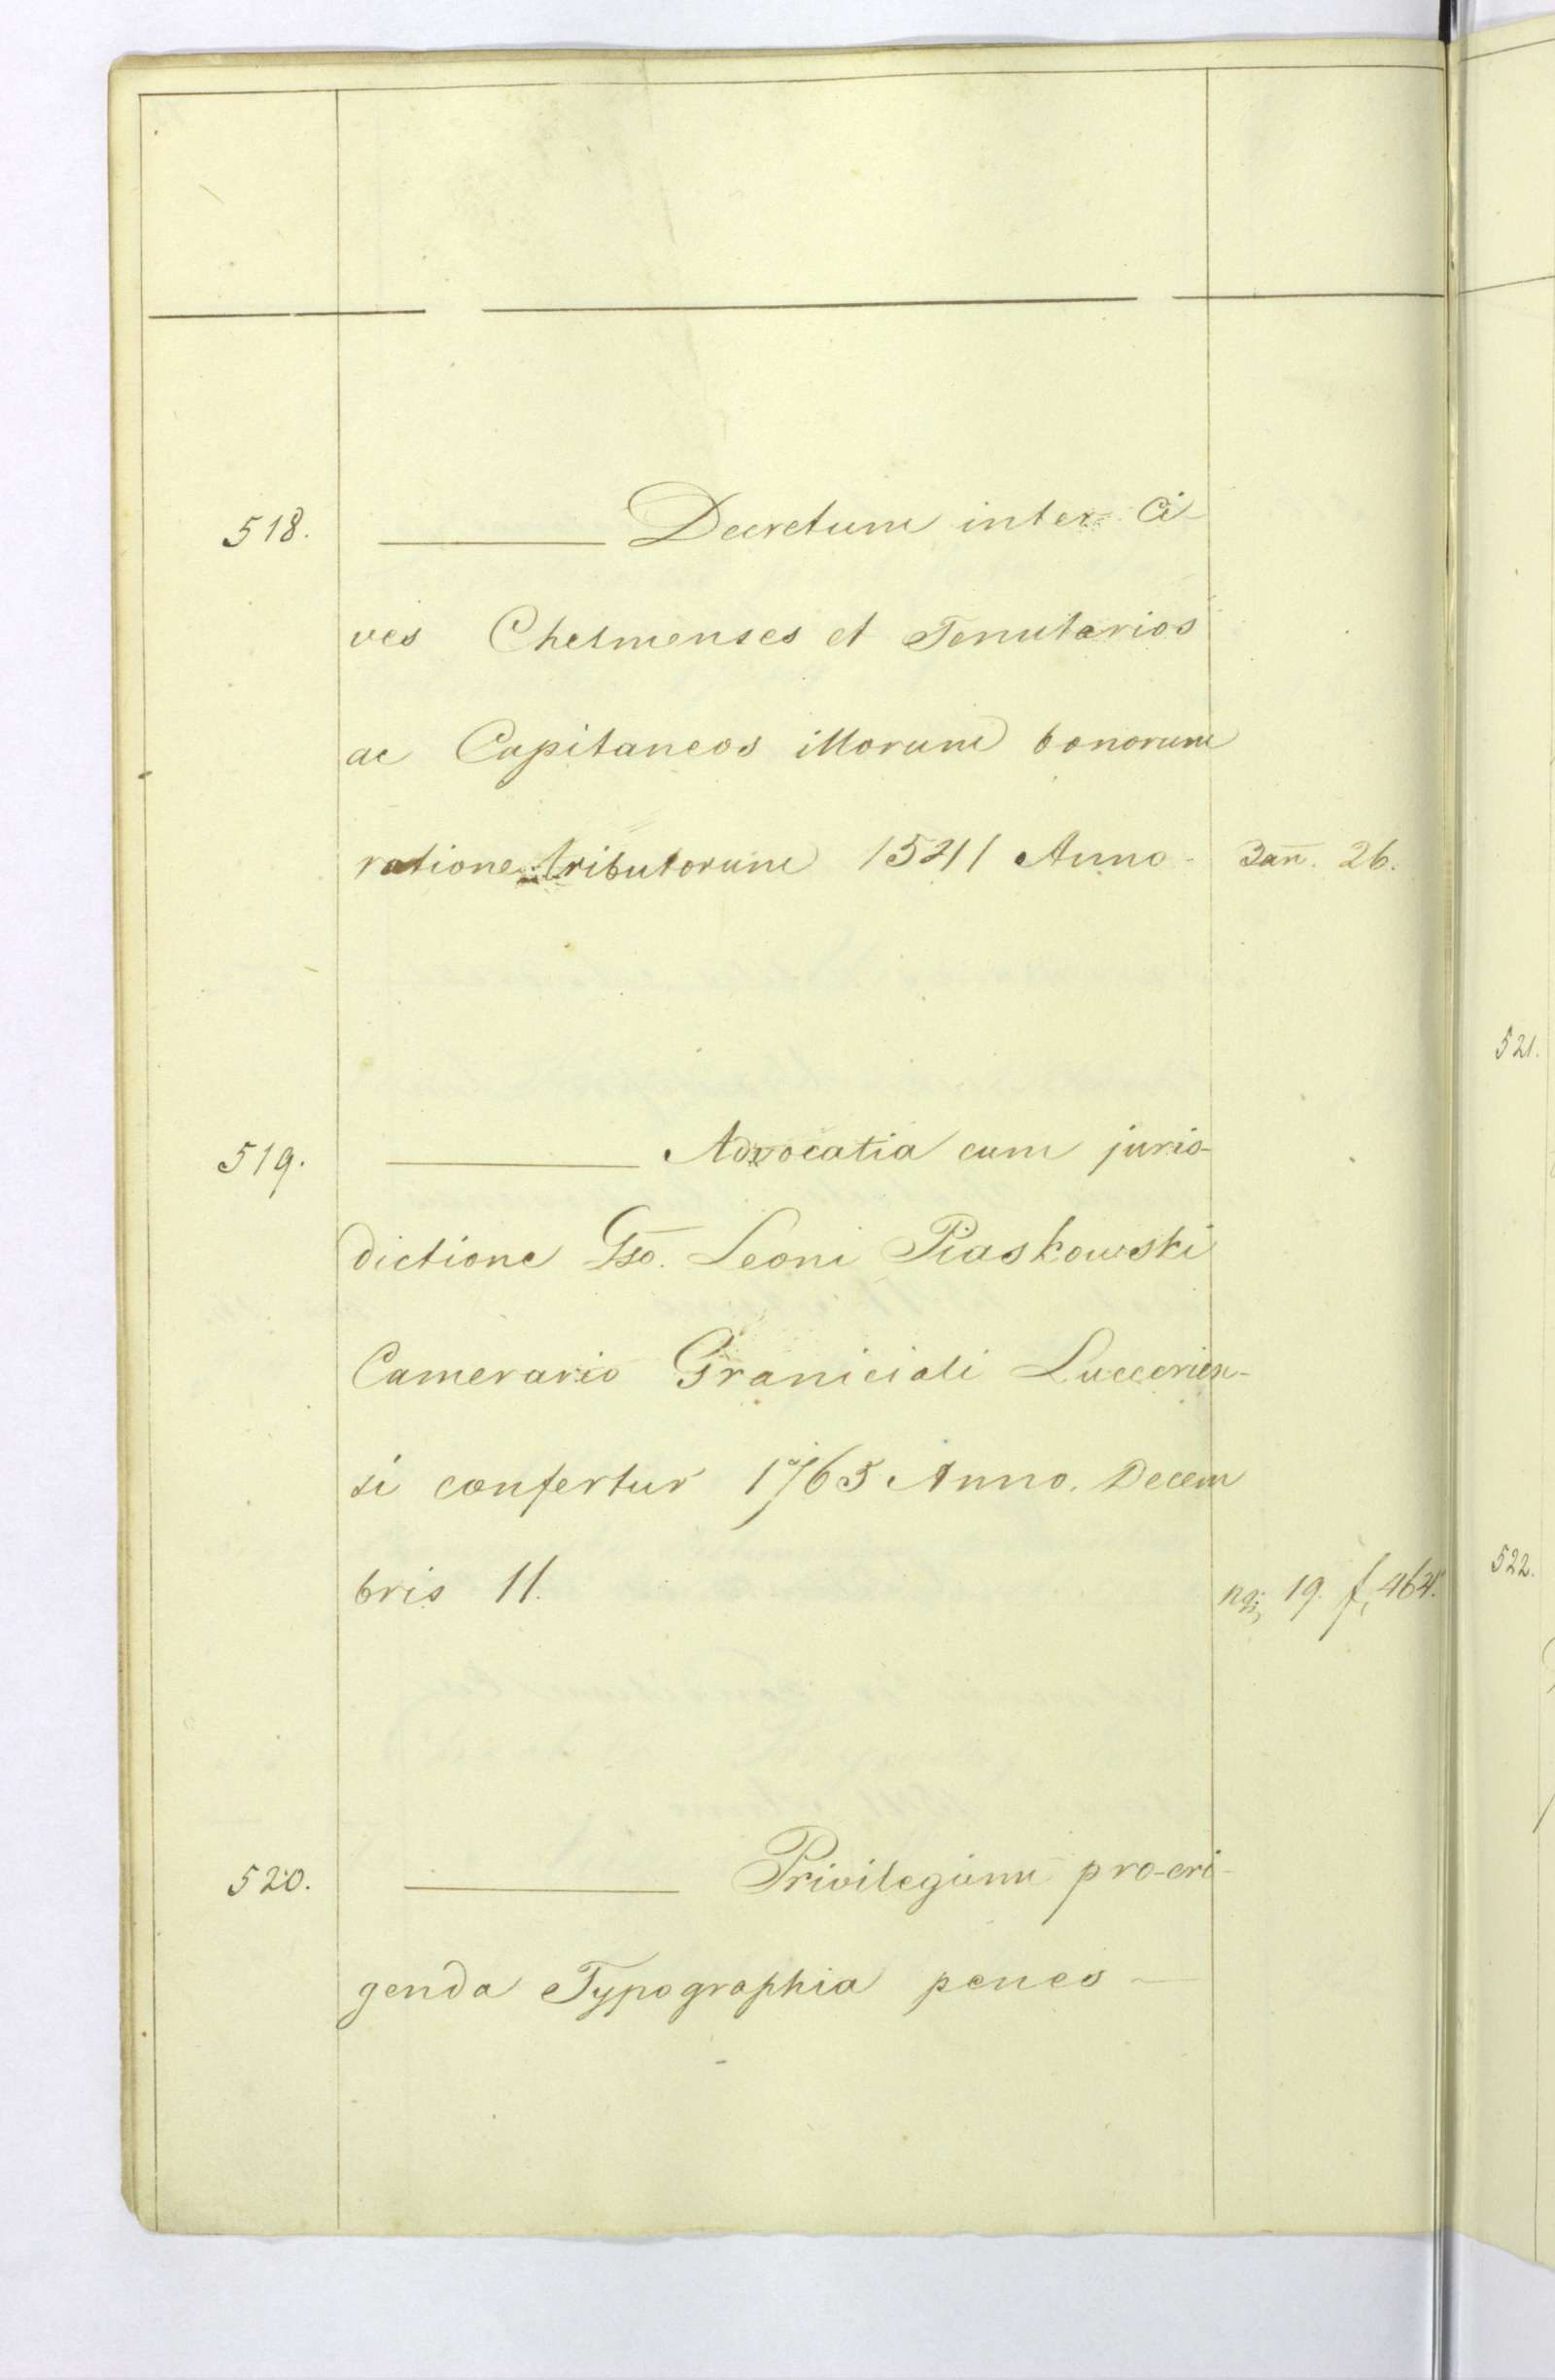 518. Decretum inter Ci-
ves Chelmenses et Tenutarios
ac Capitaneos illorum bonorum
ratione tributorum 1541 Anno - Jan̄. 26.
519. Advocatia cum juris-
dictione Gso. Leoni Piaskowski
Camerario Graniciali Luccorien-
si confertur 1765 Anno. Decem
bris 11. 19. f. 464.
520. Privilegium pro eri-
genda Typographia penes -
521.
522.